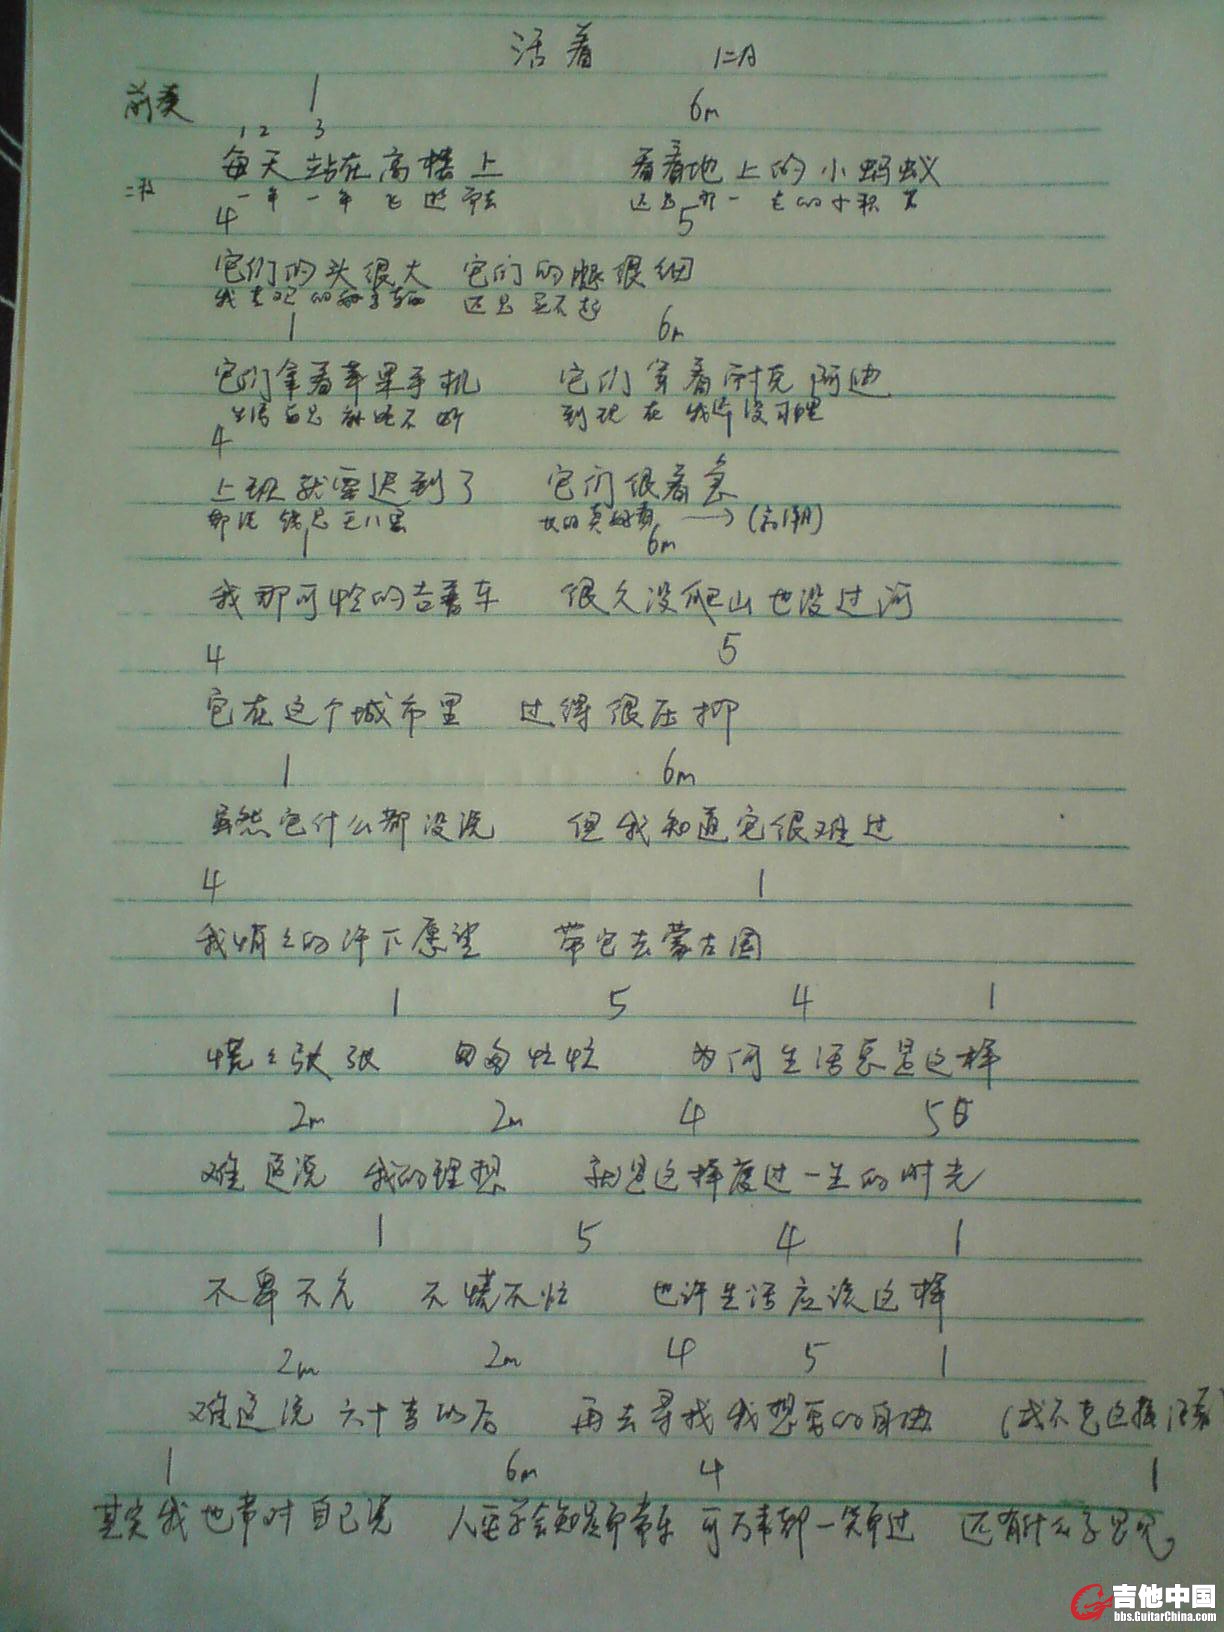 活着
前奏 1 6m
1 2 3
每天站在高楼上 看着地上的小蚂蚁
一年一年飞逝而去 还是那一老的小积蓄
4 5
它们的头很大 它们的腿很细
我 的 还是买不起
1 6m
它们拿着苹果手机 它们穿着耐克阿迪
生活总是 不断 到现在我 没
4
上班就要迟到了 它们很着急
那 (高潮)
1 6m
我那可怜的吉普车 很久没爬山也没过河
4 5
它在这个城市里 过得很压抑
1 6m
虽然它什么都没说 但我知道它很难过
4 1
我悄々的许下愿望 带它去蒙古国
1 5 4 1
慌々张张 匆匆忙忙 为何生活总是这样
2m 2m 4 5
难道说 我的理想 就是这样度过一生的时光
1 5 4 1
不卑不亢 不慌不忙 也许生活应该这样
2m 2m 4 5 1
难道说 六十岁以后 再去寻找我想要的自由 (我不
1 6m 4 1
其实我也常对自己说 人要学会知足而常乐 可万事都一笑而过 还有什么
吉他中国
bbs.GuitarChina.com